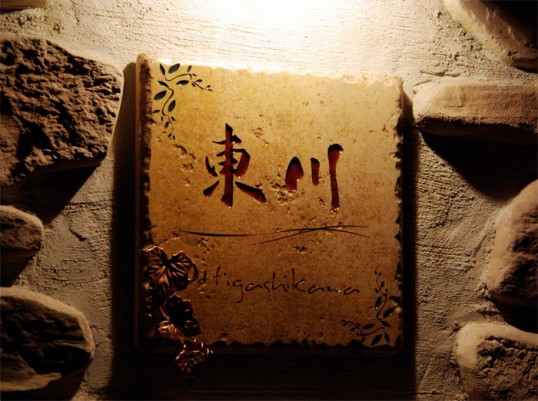 東川
Higashikawa